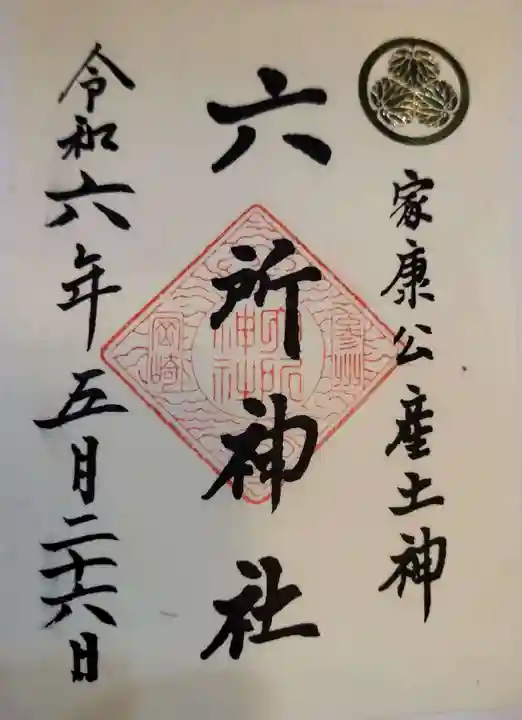 家康公産土神
六所神社
参州
六所神社
岡崎
令和六年五月二十六日